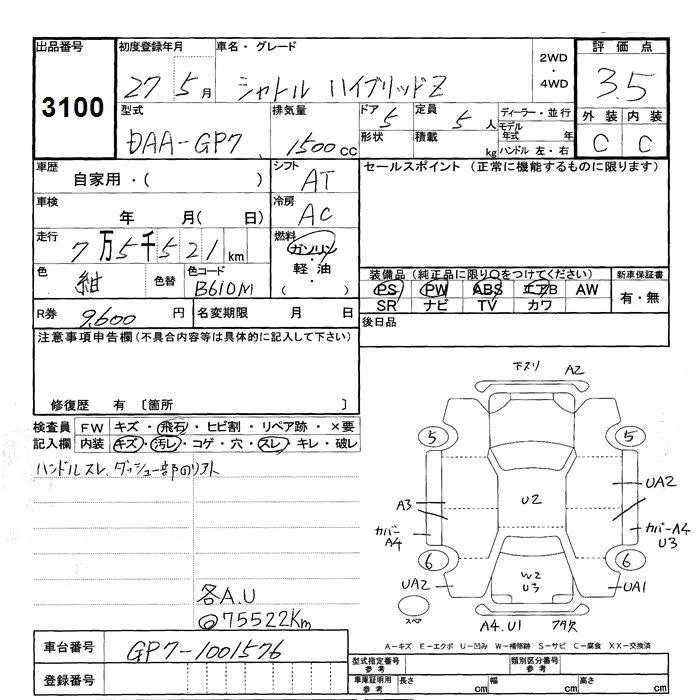 出品番号 初度登録年月 車名・グレード 2WD・4WD 評価点
3100 27 5月 シャトル ハイブリッドZ 3.5
型式 排気量 ドア 5 定員 5人 ディーラー・並行 外装 内装
DAA-GP7 1500cc 形状 積載 kg モデル年式 年 ハンドル 左・右 C C
車歴 自家用・( ) シフト AT セールスポイント (正常に機能するものに限ります)
車検 年 月( 日) 冷房 AC
走行 7万5千521km 燃料 ガソリン・軽油・( )
色 紺 色替 色コード B610M 装備品 (純正品に限り○をつけてください) 新車保証書
PS PW ABS エアB AW 有・無
SR ナビ TV カワ
R券 9,600円 名変期限 月 日 後日品
注意事項申告欄 (不具合内容等は具体的に記入して下さい)
修復歴 有 〔箇所 〕
検査員 FW キズ・飛石・ヒビ割・リペア跡・×要
記入欄 内装 キズ・汚レ・コゲ・穴・スレ・キレ・破レ
ハンドルスレ、ダッシュ一部のリアト
下スリ A2
5 5
UA2
A3 U2
カバーA4 カバーA4 U3
6 6
W2 U3
UA2 UA1
各A.U
◎75522Km
スペア A4.U1 アタ欠
A-キズ E-エクボ U-凹み W-補修跡 S-サビ C-腐食 XX-交換済
車台番号 GP7-1001576
型式指定番号 参考 類別区分番号 参考
登録番号
車庫証明用 参考 長さ cm 幅 cm 高さ cm